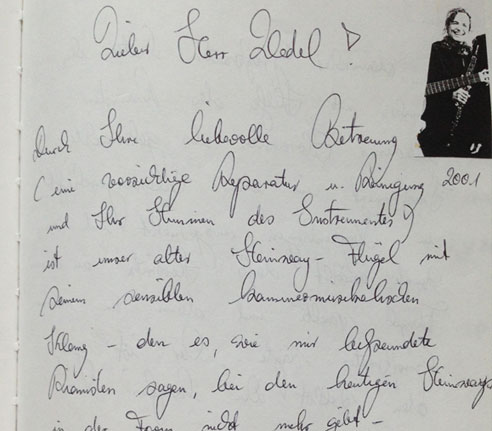 Lieber Herr Zledel!
Durch Ihre liebevolle Betreuung
(eine vorsichtige Reparatur u. Reinigung
2001
und Ihr Stimmen des Instrumentes)
ist unser alter Steinway-Flügel mit
seinem sensiblen kammermusikalischen
Klang - den es, wie mir befreundete
Pianisten sagen, bei den heutigen Steinways
in der Form nicht mehr gibt -